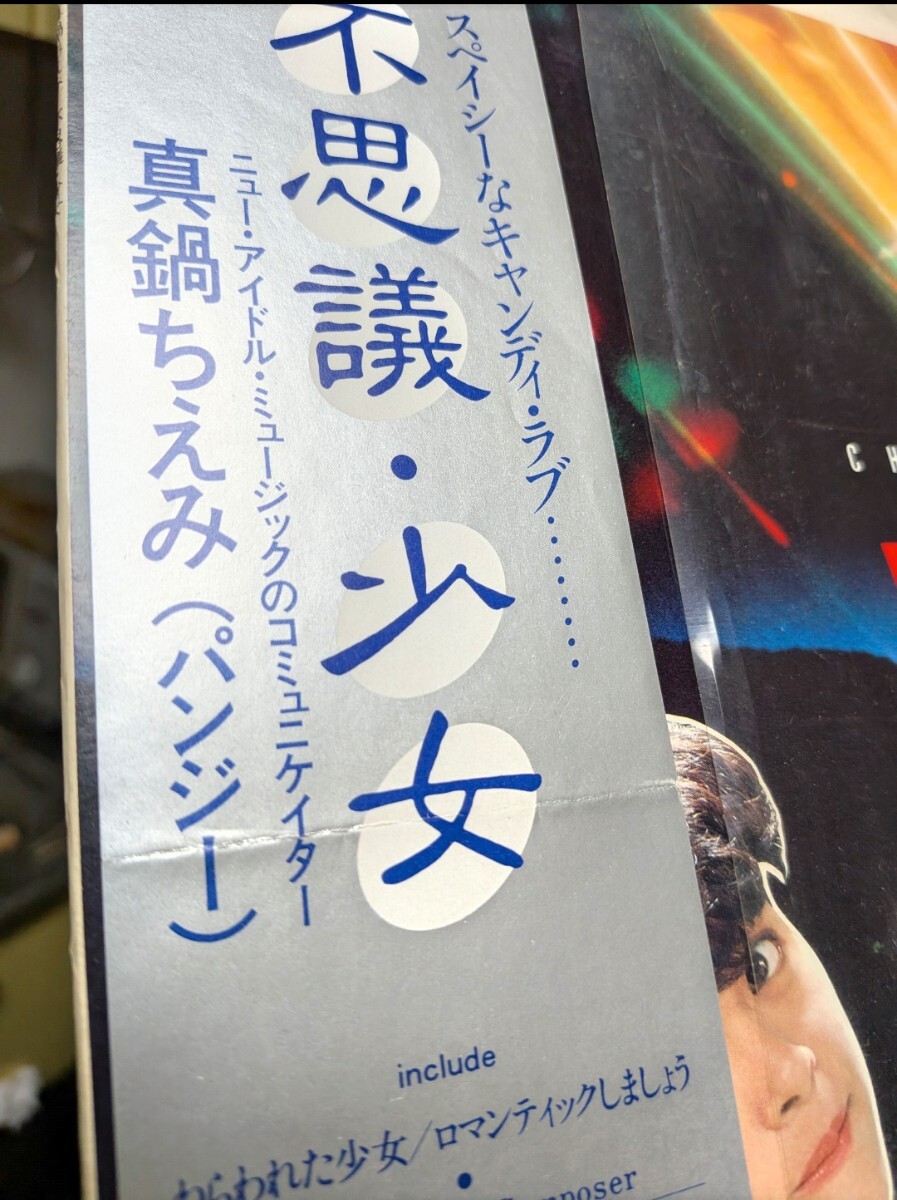 スペイシーなキャンディ・ラブ………
不思議・少女
ニュー・アイドル・ミュージックのコミュニケイター
真鍋ちえみ（パンジー）
include
われた少女/ロマンティックしましょう
CH